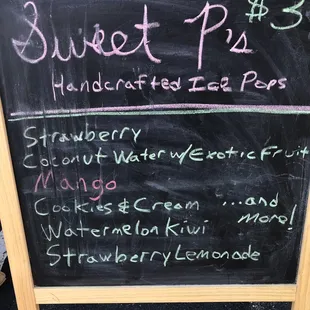 Sweet P's $3
Handcrafted Ice Pops
Strawberry
Coconut Water w/Exotic Fruit
Mango
Cookies & Cream ...and
more!
Watermelon Kiwi
Strawberry Lemonade